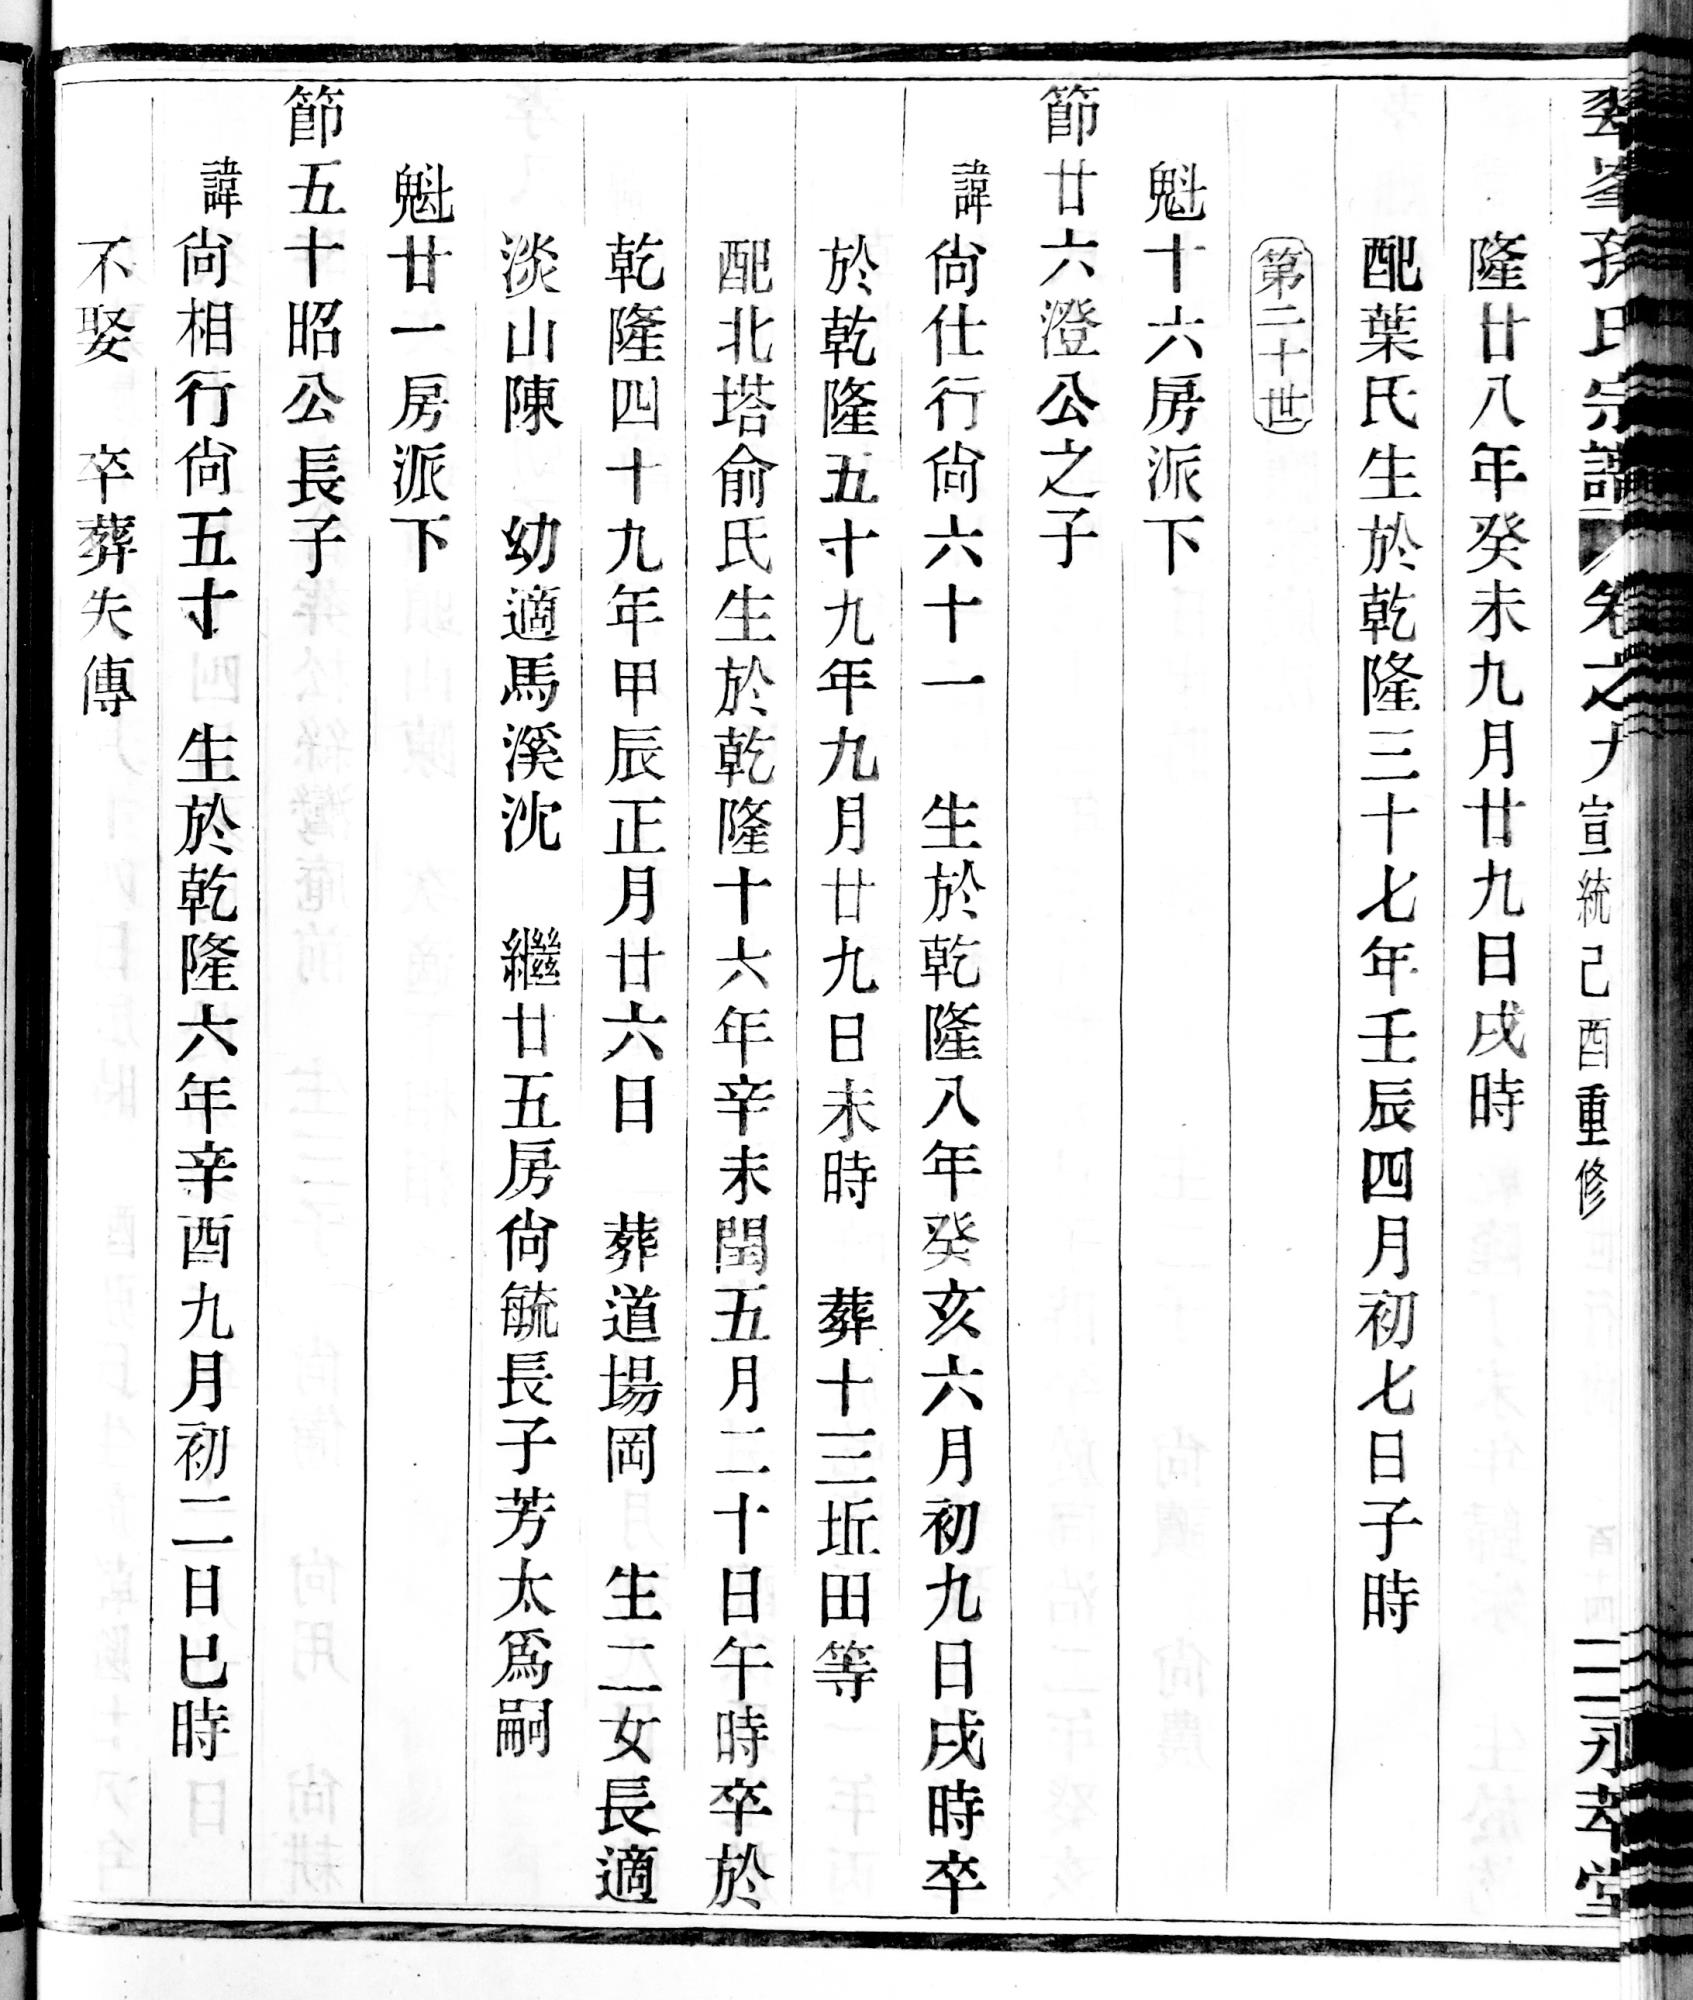 翠峯孫氏宗譜 卷之九 宣統己酉重修 永萃堂
隆廿八年癸未九月廿九日戌時
配葉氏生於乾隆三十七年壬辰四月初七日子時
第二十世
魁十六房派下
節廿六澄公之子
諱尙仕行尙六十一 生於乾隆八年癸亥六月初九日戌時卒
於乾隆五十九年九月廿九日未時 葬十三坵田等
配北塔俞氏生於乾隆十六年辛未閏五月二十日午時卒於
乾隆四十九年甲辰正月廿六日 葬道場岡 生二女長適
淡山陳 幼適馬溪沈 繼廿五房尙毓長子芳太爲嗣
魁廿一房派下
節五十昭公長子
諱尙相行尙五十 生於乾隆六年辛酉九月初二日巳時
不娶 卒葬失傳